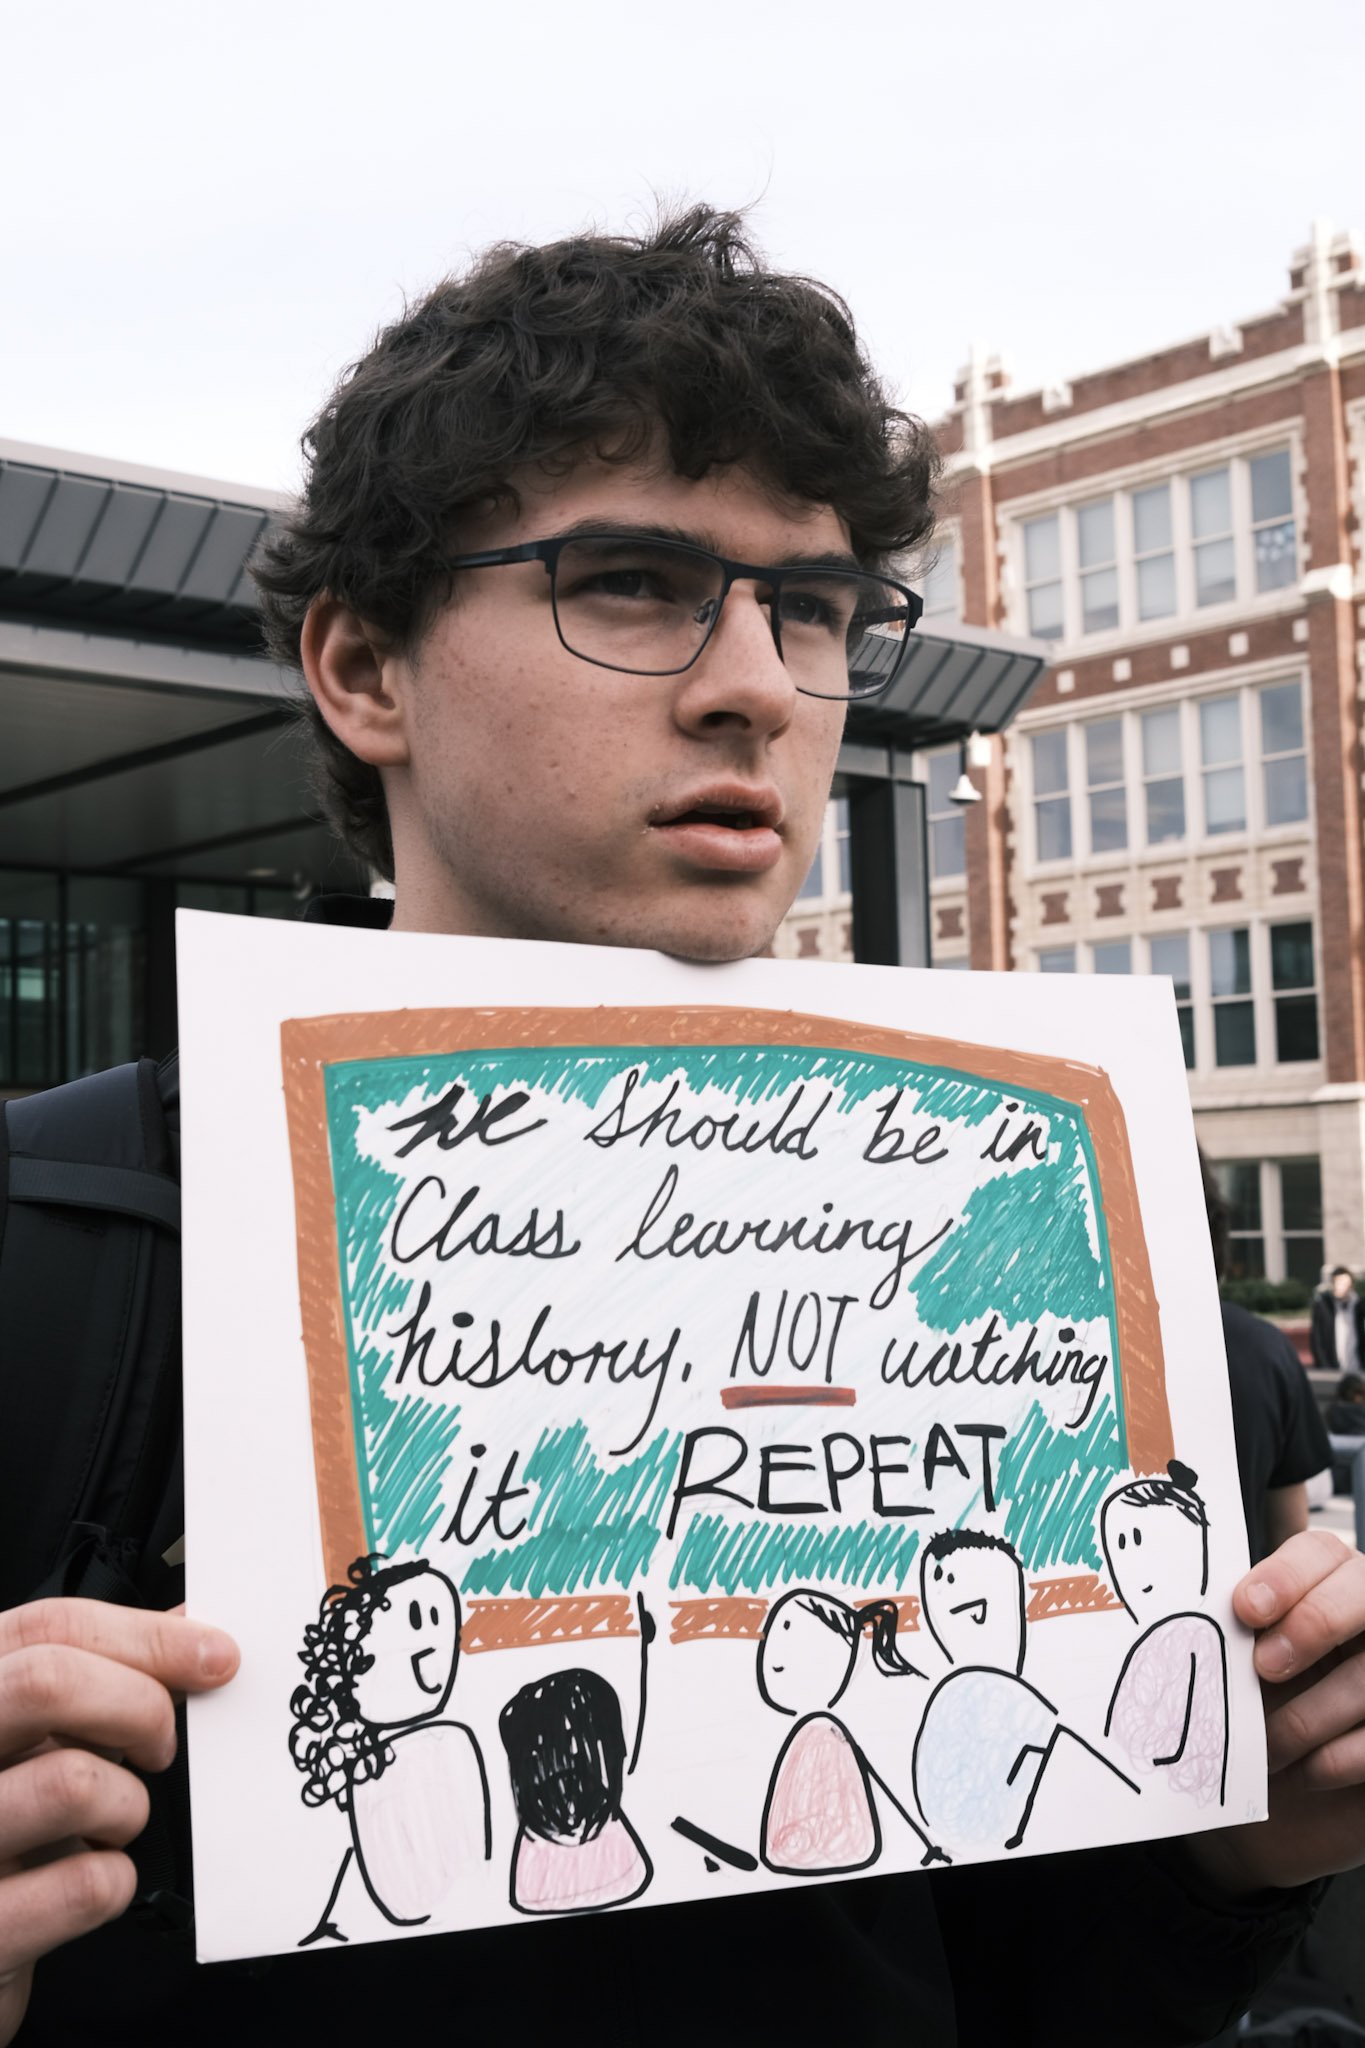 We should be in
Class learning
history, NOT watching
it REPEAT